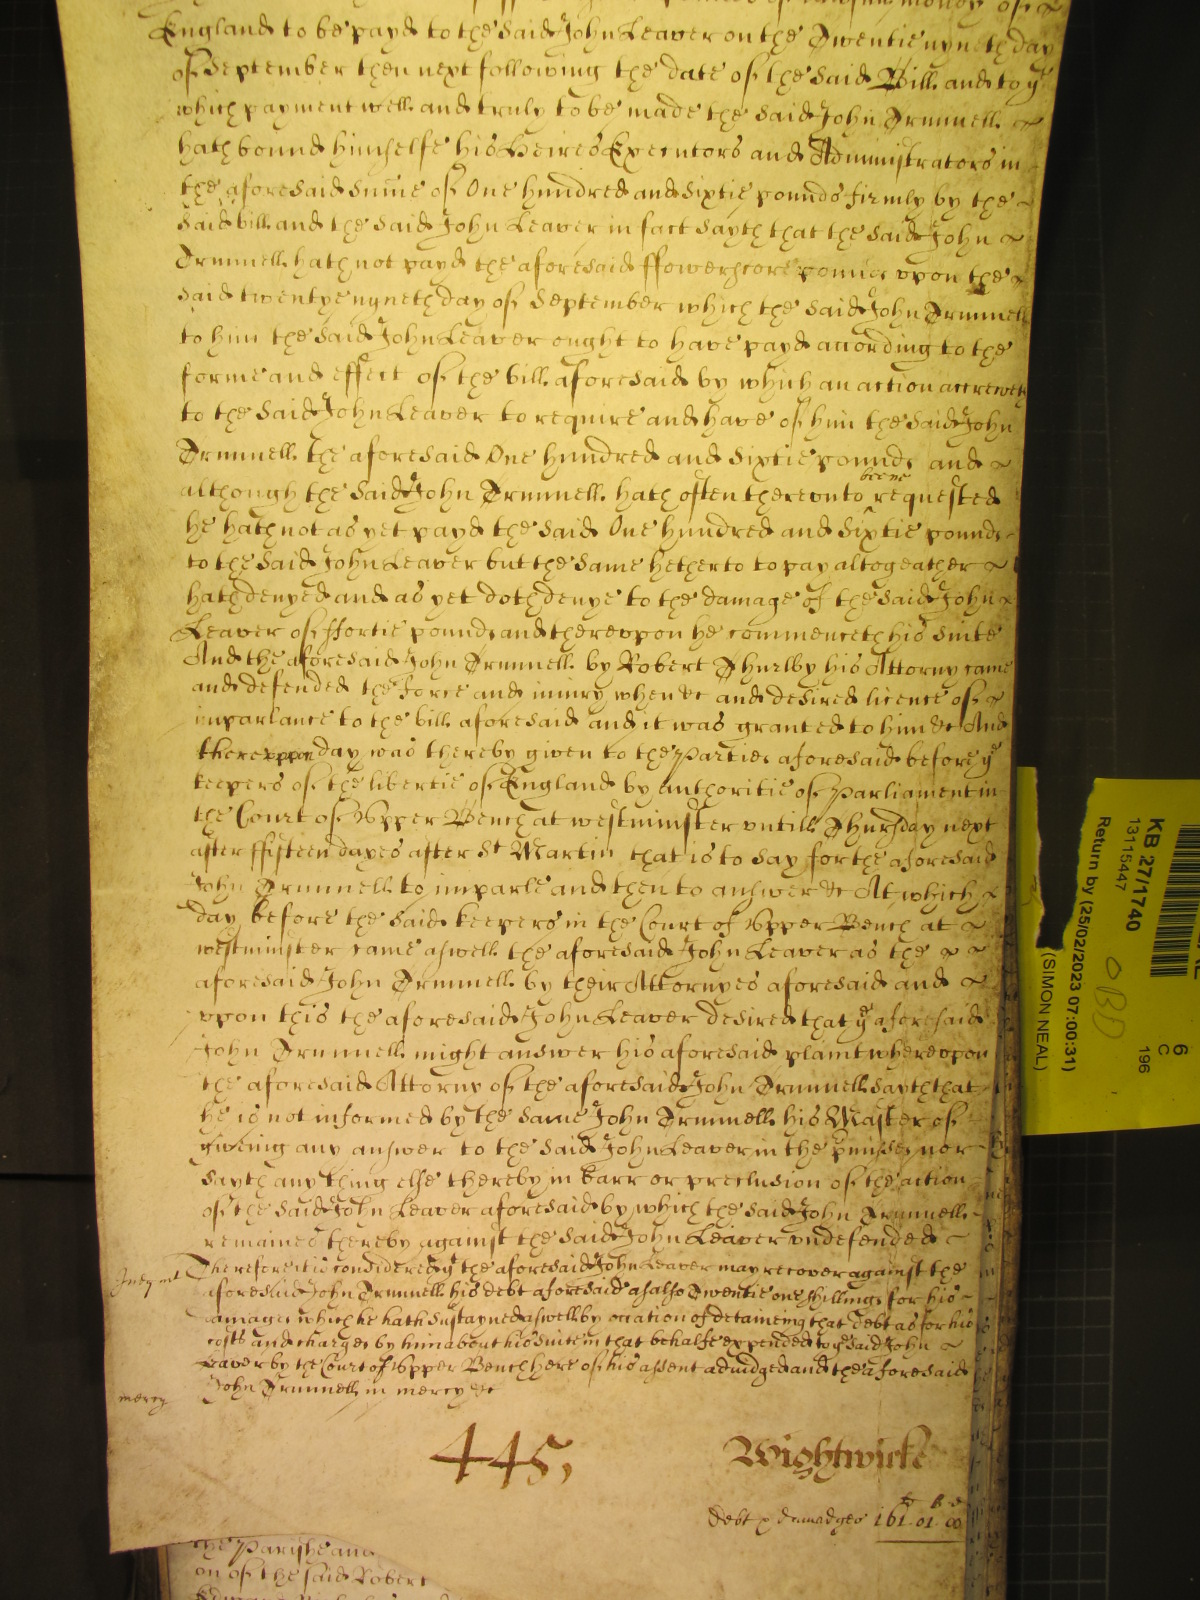 of lawfull money of
England to be payd to the said John Leaver on the Twentie nyneth day
of September then next following the date of the said Bill and to ye
which payment well and truly to be made the said John Trunnell
hath bound himselfe his Heires Executors and Administrators in
the aforesaid sume of One hundred and sixtie pounds firmly by the
said bill and the said John Leaver in fact sayth that the said John
Trunnell hath not payd the aforesaid ffowerscore pounds vpon the
said twentye nyneth day of September which the said John Trunnell
to him the said John Leaver ought to have payd according to the
forme and effect of the bill aforesaid by which an action accreweth
to the said John Leaver to require and have of him the said John
Trunnell the aforesaid One hundred and sixtie pounds and
although the said John Trunnell hath often therevnto beene requested
he hath not as yet payd the said One hundred and sixtie pounds
to the said John Leaver but the same hetherto to pay altogeather
hath denyed and as yet doth denye to the damage of the said John
Leaver of ffortie pounds and therevpon he commenceth his suite
And the aforesaid John Trunnell by Robert Thurlby his Attorny came
and defended the force and iniury when &c and desired licence of
imparlance to the bill aforesaid and it was granted to him &c And
therevppon day was thereby given to the Parties aforesaid before ye
keepers of the libertie of England by authoritie of Parliament in
the Court of Vpper Bench at westminster vntill Thursday next
after ffifteen dayes after St Martin that is to say for the aforesaid
John Trunnell to imparle and then to answer &c At which
day before the said keepers in the Court of Vpper Bench at
westminster came aswell the aforesaid John Leaver as the
aforesaid John Trunnell by their Attornyes aforesaid and
vpon this the aforesaid John Leaver desired that ye aforesaid
John Trunnell might answer his aforesaid plaint wherevpon
the aforesaid Attorny of the aforesaid John Trunnell sayth that
he is not informed by the same John Trunnell his Master of
giveing any answer to the said John Leaver in the pmisses nor
sayth any thing else thereby in barr or preclusion of the action
of the said John Leaver aforesaid by which the said John Trunnell
remaines thereby against the said John Leaver vndefended
Therefore it is considered yt the aforesaid John Leaver may recover against the
aforesaid John Trunnell his debt aforesaid as also Twentie one shillings for his
damages which he hath sustayned aswell by occation of detaineing that debt as for his
costs and charges by him about his suite in that behalfe expended to ye said John
Leaver by the Court of Vpper Bench here of his assent adiudged and the aforesaid
John Trunnell in mercy &c
mercy
445,
Wightwicke
debt & damadges 161. 01. 00
the Parishe and
on of the said Robert
KB 27/1740
13115447
Return by (25/02/2023 07:00:31)
(SIMON NEAL)
6
C
196